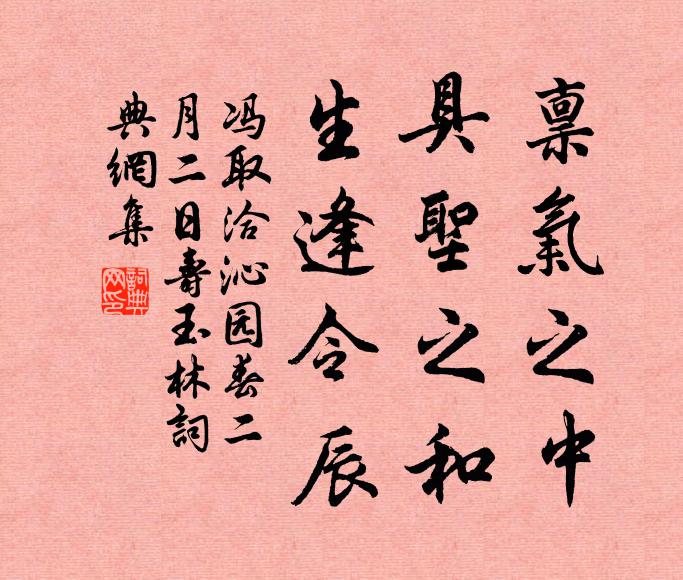 禀氣之中
具聖之和
生逢令辰
冯取洽沁园春二
月二日壽玉林詞
典網集
詞典網印